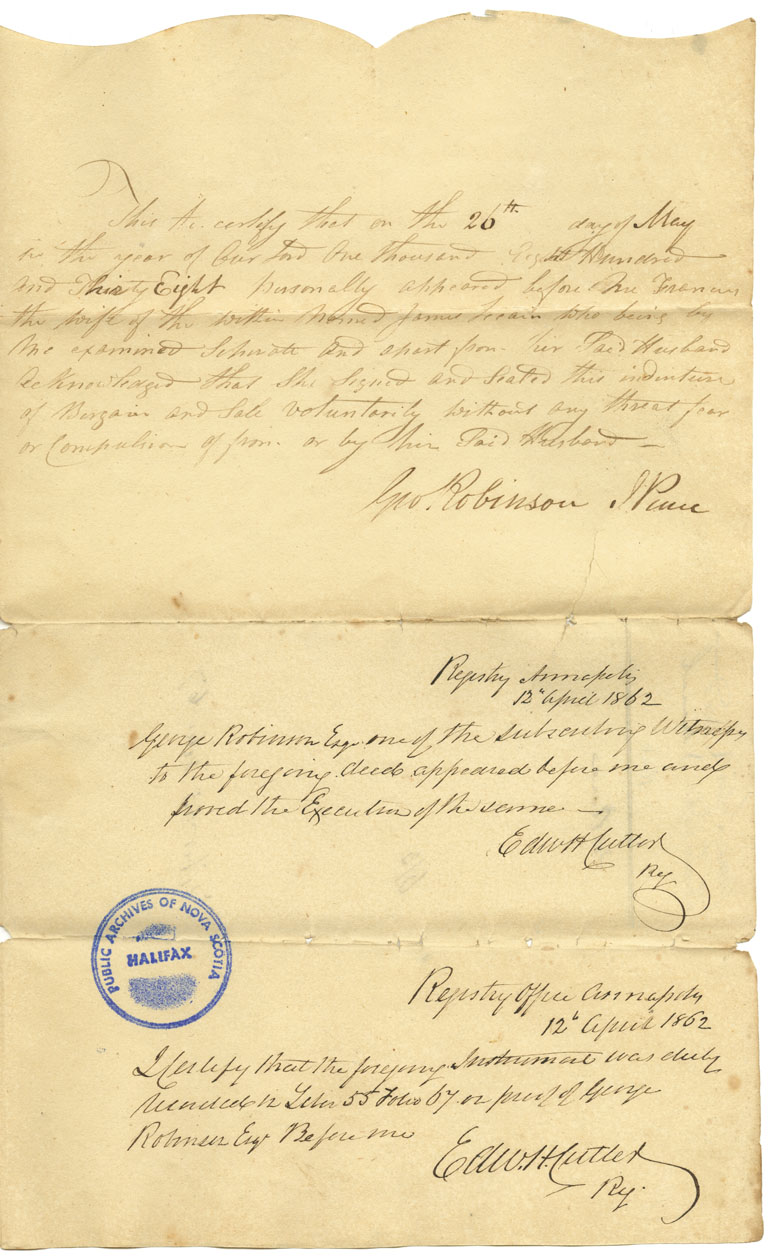 This to certify that on the 26th day of May
in the year of Our Lord One thousand Eight Hundred
and Thirty Eight personally appeared before Me Frances
the wife of the within Named James who being by
Me examined Seperate and apart from her Said Husband
acknowledged that She Signed and Sealed this indenture
of Bargain and Sale voluntarily without any threat fear
or Compulsion of from or by him Said Husband
Geo. Robinson J Peace
Registry Annapolis
12th April 1862
George Robinson Esqr one of the subscribing Witnesses
to the foregoing deed appeared before me and
proved the Execution of the same
Edw H Cutler
Reg
PUBLIC ARCHIVES OF NOVA SCOTIA
HALIFAX
Registry Office Annapolis
12th April 1862
I Certify that the foregoing Instrument was duly
Recorded in Liber 55 Folio 67 on proof of George
Robinson Esqr Before me
Edw. H. Cutler
Reg.